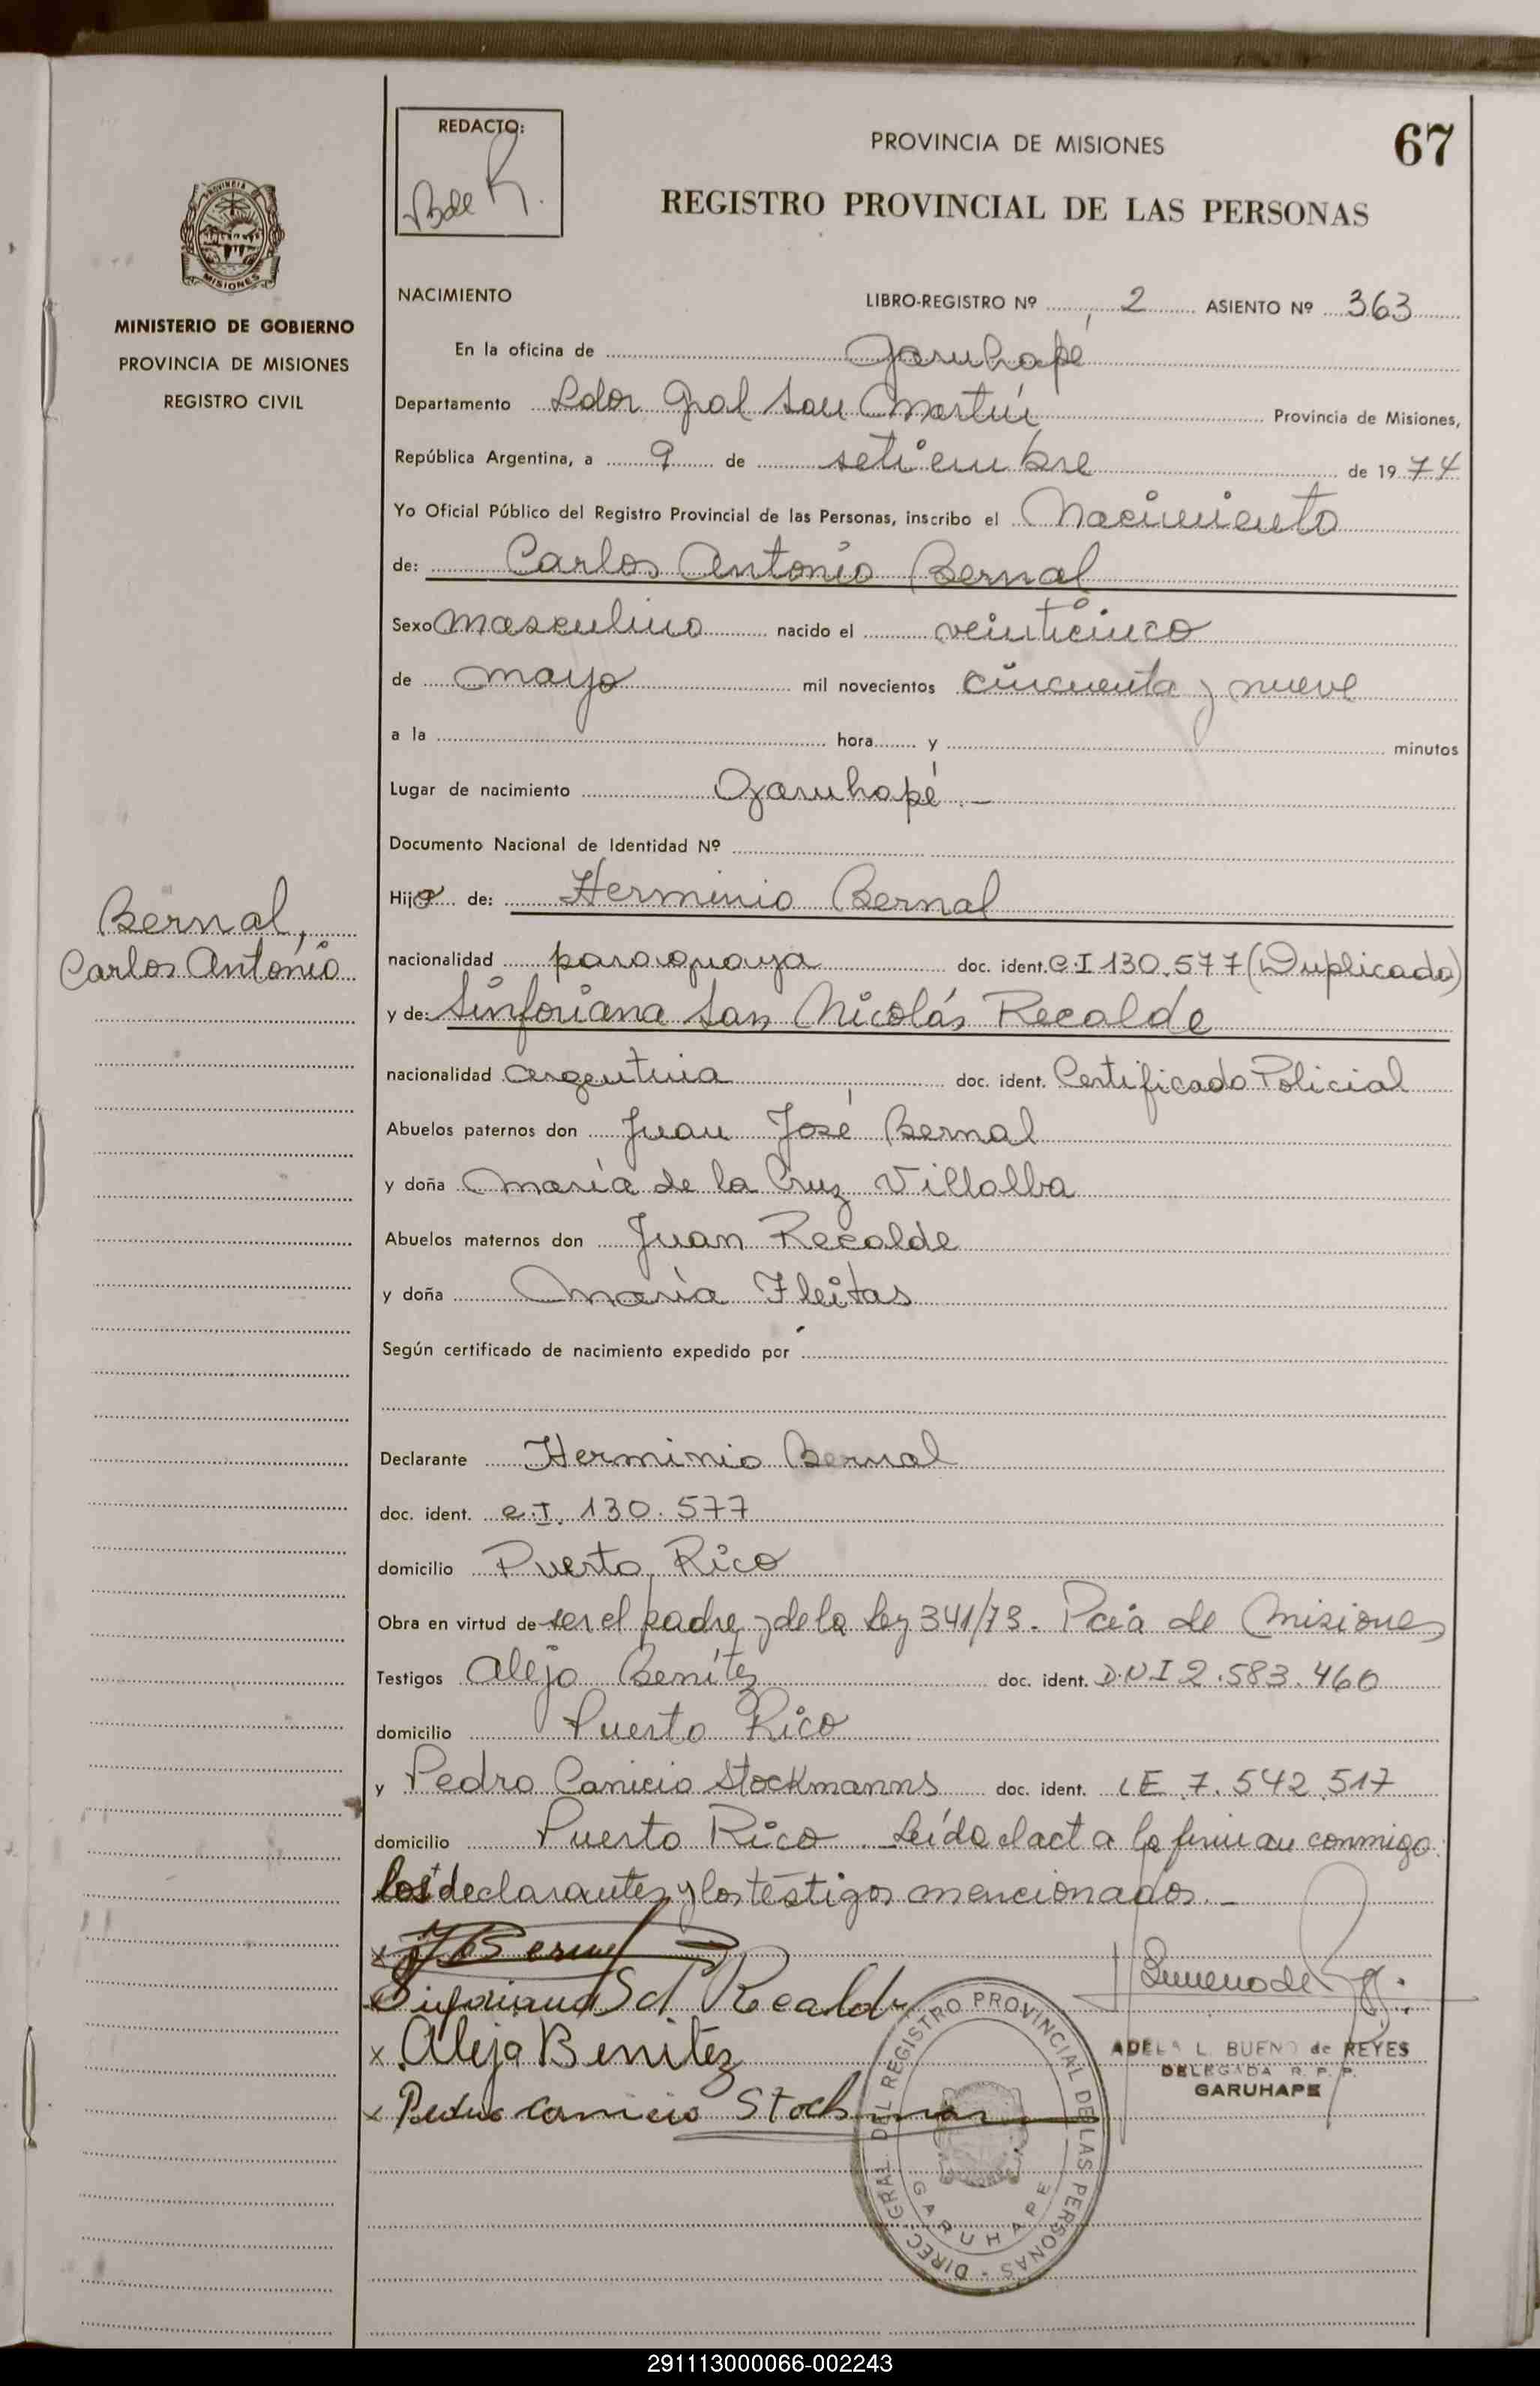 REDACTO:
BdeR.
PROVINCIA DE MISIONES
67
REGISTRO PROVINCIAL DE LAS PERSONAS
PROVINCIA
MISIONES
MINISTERIO DE GOBIERNO
PROVINCIA DE MISIONES
REGISTRO CIVIL
NACIMIENTO
LIBRO-REGISTRO Nº 2 ASIENTO Nº 363
En la oficina de Garuhapé
Departamento Ldor Gral San Martín Provincia de Misiones,
República Argentina, a 9 de setiembre de 1974
Yo Oficial Público del Registro Provincial de las Personas, inscribo el Nacimiento
de: Carlos Antonio Bernal
Sexo masculino nacido el veinticinco
de mayo mil novecientos cincuenta y nueve
a la hora y minutos
Lugar de nacimiento Garuhapé.-
Documento Nacional de Identidad Nº
Hijo de: Herminio Bernal
Bernal,
Carlos Antonio
nacionalidad paraguaya doc. ident. C.I 130.577 (Duplicado)
y de: Sinforiana San Nicolás Recalde
nacionalidad argentina doc. ident. Certificado Policial
Abuelos paternos don Juan José Bernal
y doña María de la Cruz Villalba
Abuelos maternos don Juan Recalde
y doña María Fleitas
Según certificado de nacimiento expedido por
Declarante Herminio Bernal
doc. ident. C.I. 130.577
domicilio Puerto Rico
Obra en virtud de ser el padre y de la Ley 341/73. Pcia de Misiones
Testigos Alejo Benítez doc. ident. D.N.I 2.583.460
domicilio Puerto Rico
y Pedro Canicio Stockmanns doc. ident. LE 7.542.517
domicilio Puerto Rico. Leída el acta la firman conmigo
los declarantes y los testigos mencionados.-
x HBernal
Sinforiana Sd Recalde
x Alejo Benitez
x Pedro Canicio Stockmans
LBuenodeR
ADELA L. BUENO de REYES
DELEGADA R. P. P.
GARUHAPE
DIREC. GRAL. DEL REGISTRO PROVINCIAL DE LAS PERSONAS -
GARUHAPE
291113000066-002243